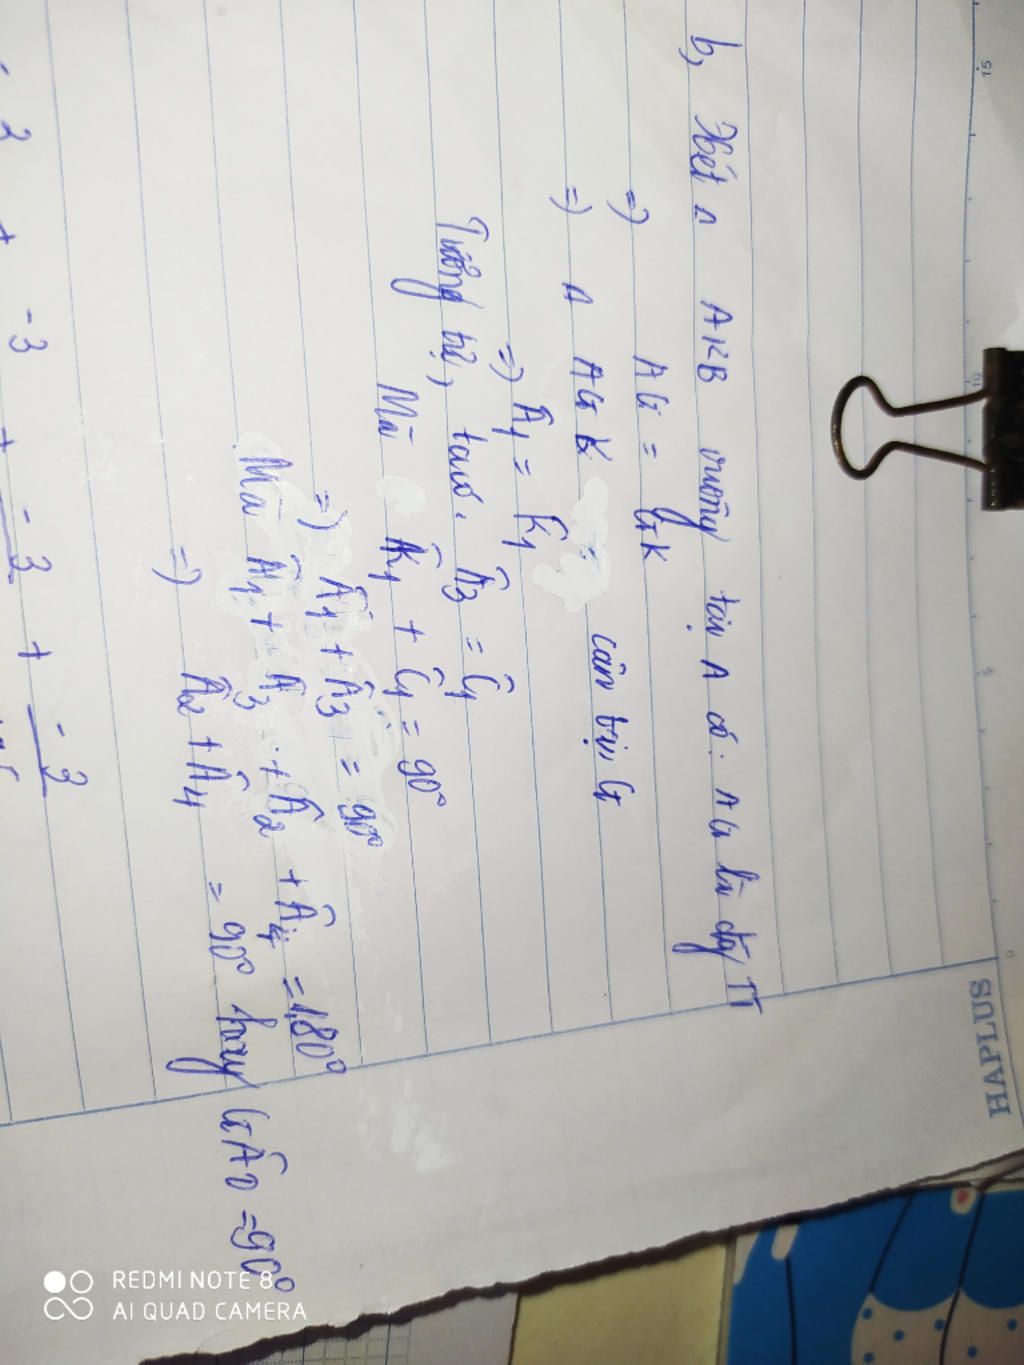 b, Xét Δ AKB vuông tại A có. AG là đg TT
=) AG = GK
=) Δ AGK cân tại G
=) Â1 = K̂1
Tương tự, ta có. Â3 = Ĉ1
Mà K̂1 + Ĉ1 = 90°
=) Â1 + Â3 = 90°
Mà Â1 + Â3 + Â2 + Â4 = 180°
=) Â2 + Â4 = 90° hay GÂD = 90°
-3 + -3 + -3
HAPLUS
15
10
5
0
REDMI NOTE 8
AI QUAD CAMERA